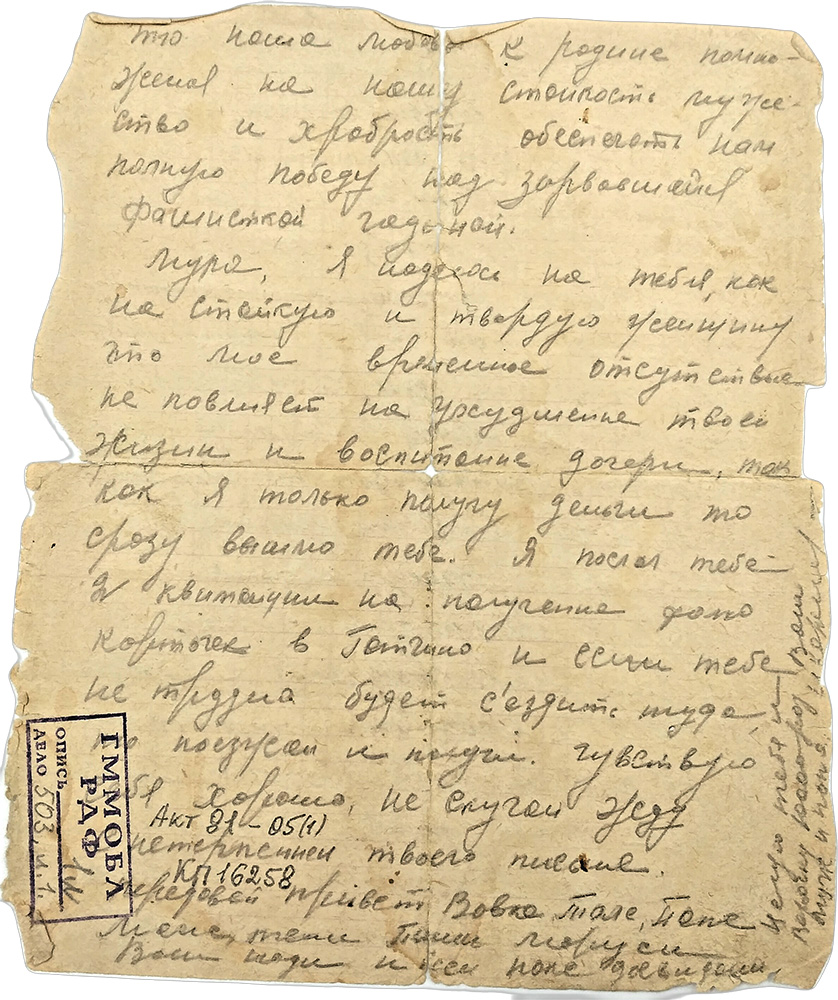 что наша любовь к родине помно-
женая на нашу стойкость муже-
ство и храбрость обеспечать нам
полную победу над зарвавшейся
фашисткой гадиной.
Мура, я надеюсь на тебя, как
на стойкую и твердую женщину
что мое временное отсутствие
не повлияет на ухудшение твоей
жизни и воспитание дочери, так
как я только получу деньги то
сразу вышлю тебе. Я послал тебе
2 квитанции на получение фото
карточек в Гатчино и если тебе
не трудна будет съездить туда
то поезжай и получи. Чувствую
себя хорошо, не скучаю жду
нетерпением твоего письма.
передовай привет Вовке, Тале, Папе
Маме, тети Пани Маруси
Вани Нади и всем пока досвидания.
Целую тебя и
Верочку раз Ваш
муж и папа.
ГММОБЛ
РДФ
ОПИСЬ 1м
ДЕЛО 503, и. 1.
Акт 31-05(1)
КП 16258